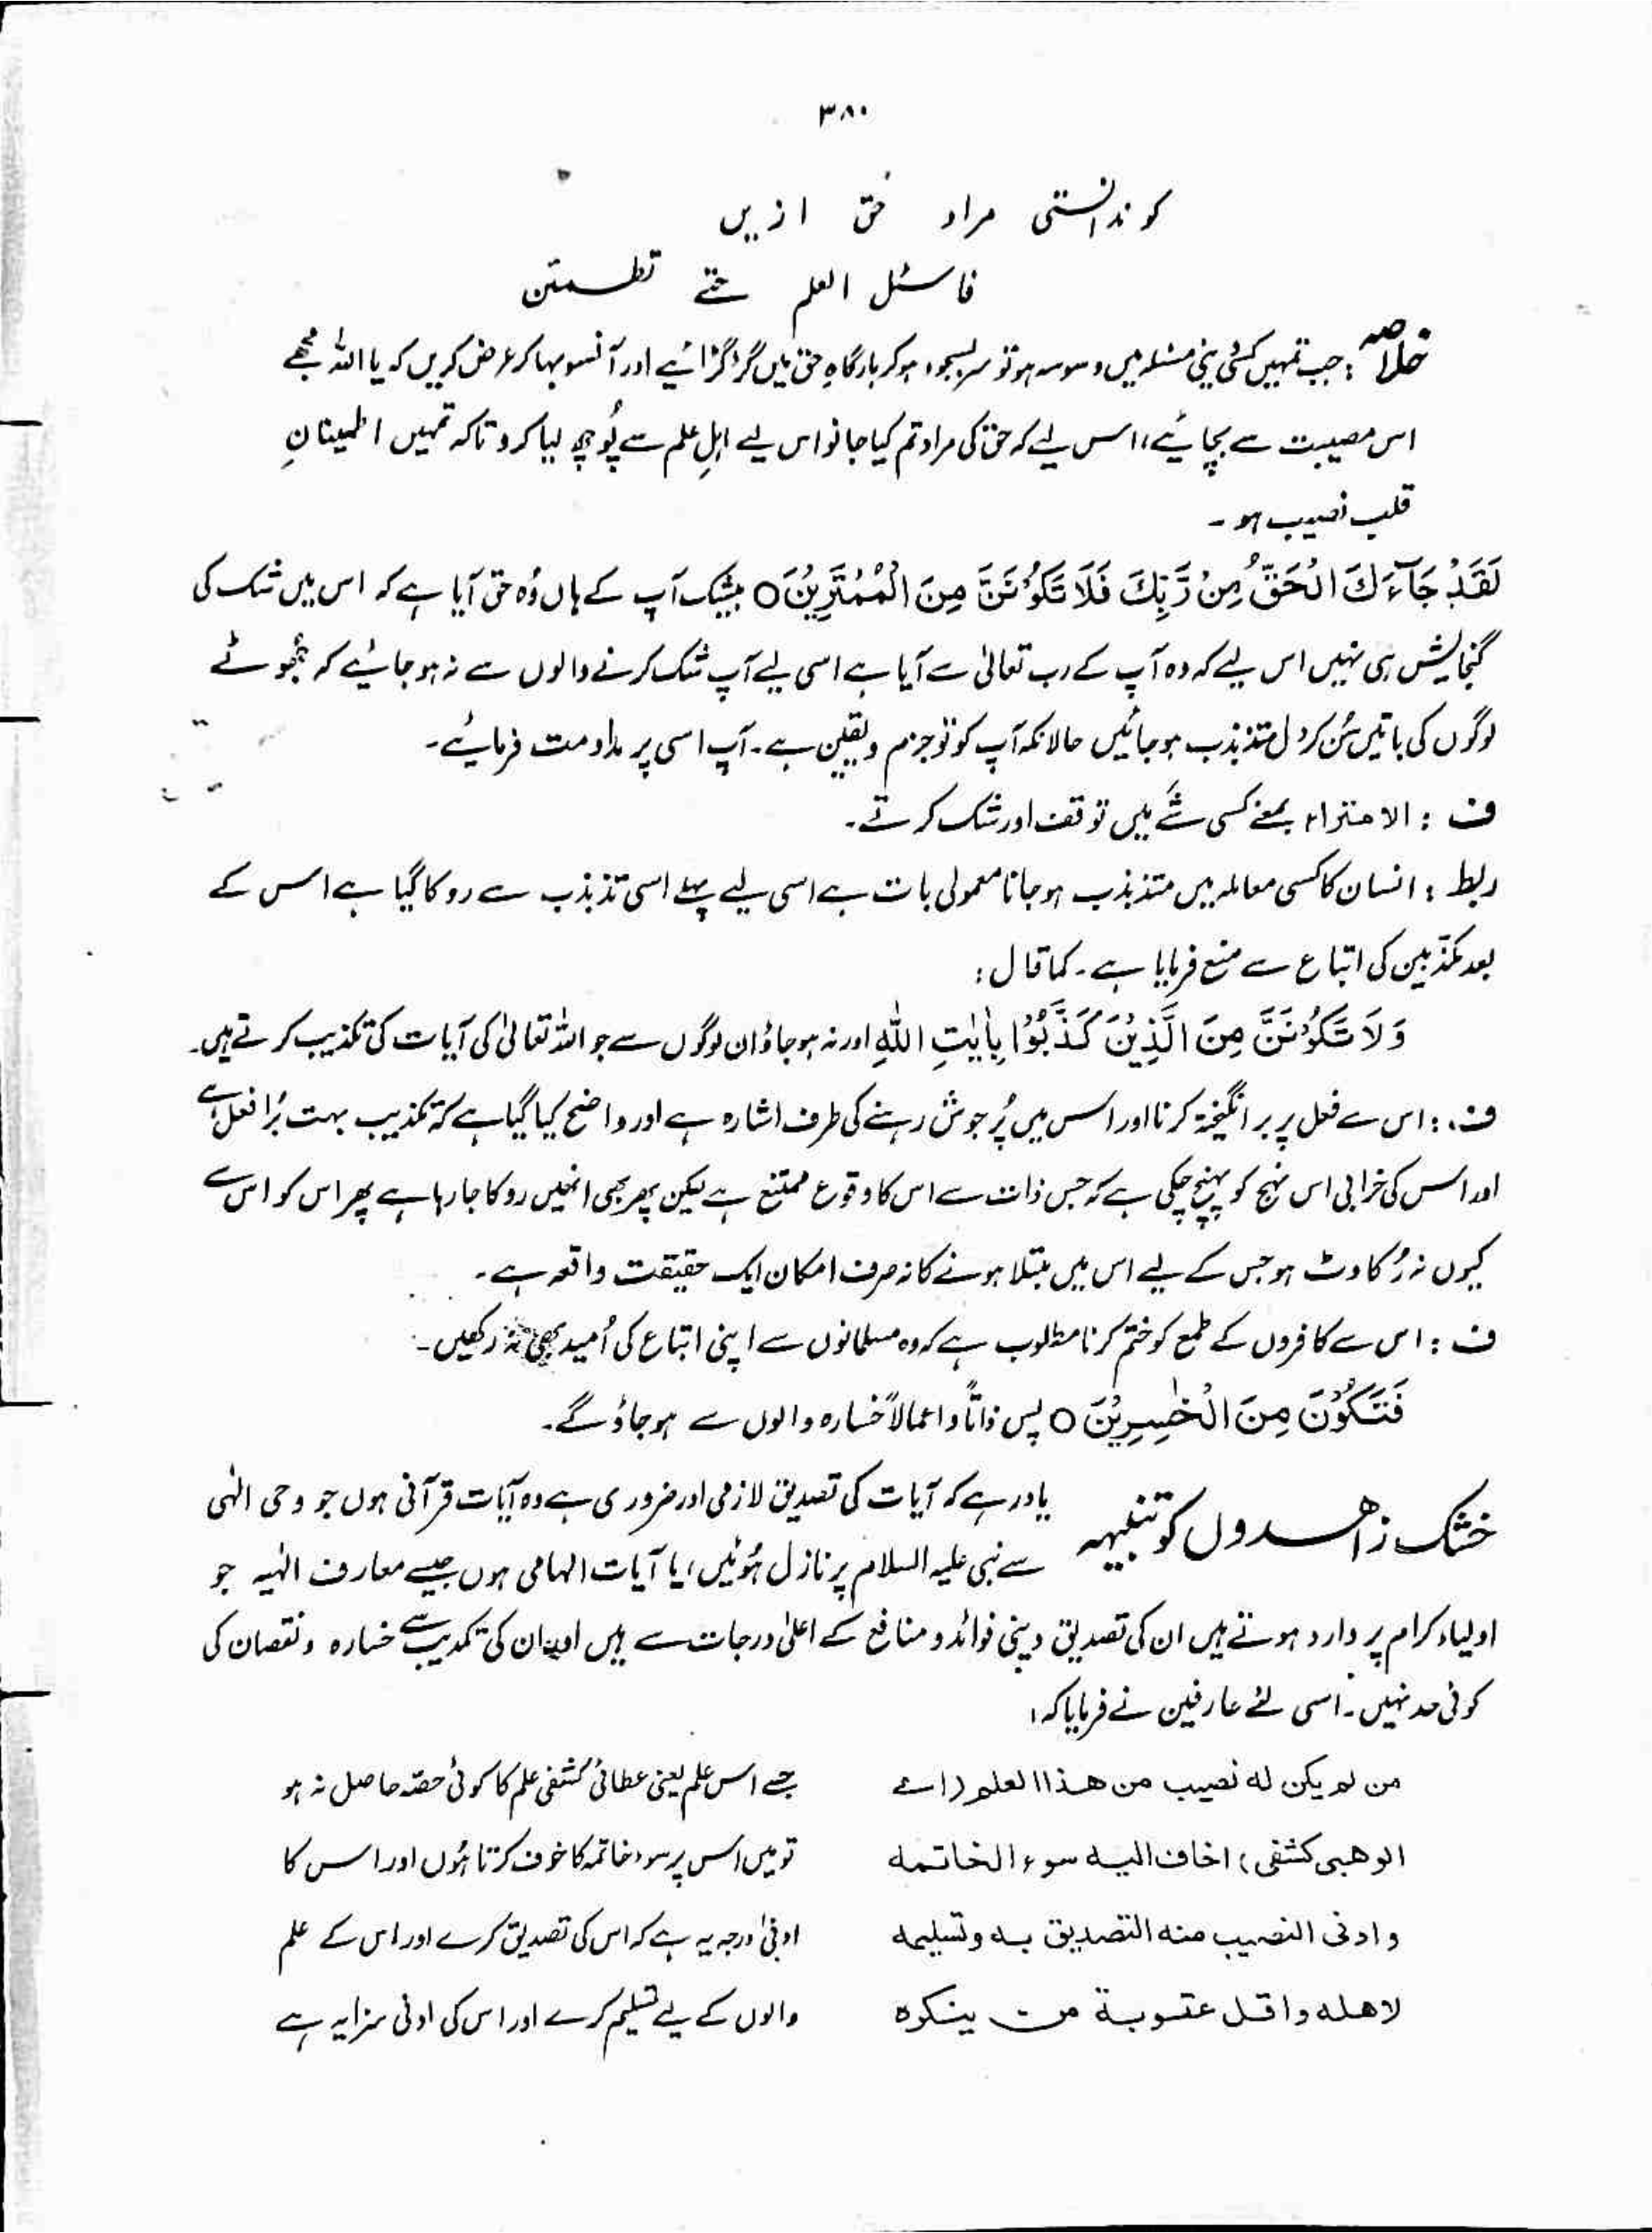 ۳۸۰
کو ندانستی مراد حق ازیں
فاسئل العلم حتے تطمئن
خلاصہ : جب تمہیں کسی دینی مسئلہ میں وسوسہ ہو تو سربسجود ہو کر بارگاہِ حق میں گڑگڑائیے اور آنسو بہا کر عرض کریں کہ یا اللہ مجھے
اس مصیبت سے بچائیے، اس لیے کہ حق کی مراد تم کیا جانو اس لیے اہلِ علم سے پُوچھ لیا کرو تاکہ تمہیں اطمینانِ
قلب نصیب ہو ۔
لَقَدْ جَآءَكَ الْحَقُّ مِنْ رَّبِّكَ فَلَا تَكُوْنَنَّ مِنَ الْمُمْتَرِيْنَ ○ بیشک آپ کے ہاں وُہ حق آیا ہے کہ اس میں شک کی
گنجایش ہی نہیں اس لیے کہ وہ آپ کے رب تعالیٰ سے آیا ہے اسی لیے آپ شک کرنے والوں سے نہ ہو جائیے کہ جُھوٹے
لوگوں کی باتیں سُن کر دل متذبذب ہو جائیں حالانکہ آپ کو تو جزم و یقین ہے ۔ آپ اسی پر مداومت فرمائیے ۔
ف : الامتراء بمعنے کسی شے میں توقف اور شک کرتے ۔
ربط : انسان کا کسی معاملہ میں متذبذب ہو جانا معمولی بات ہے اسی لیے پہلے اسی تذبذب سے روکا گیا ہے اس کے
بعد مکذّبین کی اتباع سے منع فرمایا ہے ۔ کما قال :
وَلَا تَكُوْنَنَّ مِنَ الَّذِيْنَ كَذَّبُوْا بِاٰيٰتِ اللّٰهِ اور نہ ہو جاؤ ان لوگوں سے جو اللہ تعالیٰ کی آیات کی تکذیب کرتے ہیں ۔
ف : اس سے فعل پر برانگیختہ کرنا اور اس میں پُر جوش رہنے کی طرف اشارہ ہے اور واضح کیا گیا ہے کہ تکذیب بہت بُرا فعل ہے
اور اس کی خرابی اس نہج کو پہنچ چکی ہے کہ جس ذات سے اس کا وقوع ممتنع ہے لیکن پھر بھی انھیں روکا جا رہا ہے پھر اس کو اس سے
کیوں نہ رُکاوٹ ہو جس کے لیے اس میں مبتلا ہونے کا نہ صرف امکان ایک حقیقت واقعہ ہے ۔
ف : اس سے کافروں کے طمع کو ختم کرنا مطلوب ہے کہ وہ مسلمانوں سے اپنی اتباع کی اُمید بھی نہ رکھیں ۔
فَتَكُوْنَ مِنَ الْخٰسِرِيْنَ ○ پس ذاتاً و اعمالاً خسارہ والوں سے ہو جاؤ گے ۔
خشک زاھدوں کو تنبیہہ
یاد رہے کہ آیات کی تصدیق لازمی اور ضروری ہے وہ آیات قرآنی ہوں جو وحی الٰہی
سے نبی علیہ السلام پر نازل ہُوئیں، یا آیات الہامی ہوں جیسے معارف الٰہیہ جو
اولیاء کرام پر وارد ہوتے ہیں ان کی تصدیق دینی فوائد و منافع کے اعلیٰ درجات سے ہیں اور ان کی تکذیب سے خسارہ و نقصان کی
کوئی حد نہیں ۔ اسی لئے عارفین نے فرمایا کہ :
من لم یکن له نصیب من ھذا العلم (اے
الوھبی کشفی) اخاف الیه سوء الخاتمه
وادنی النصیب منه التصدیق به وتسلیمه
لاھله واقل عقوبة من ینکره
جسے اس علم یعنی عطائی کشفی علم کا کوئی حصّہ حاصل نہ ہو
تو میں اس پر سوء خاتمہ کا خوف کرتا ہُوں اور اس کا
ادنیٰ درجہ یہ ہے کہ اس کی تصدیق کرے اور اس کے علم
والوں کے لیے تسلیم کرے اور اس کی ادنی سزا یہ ہے